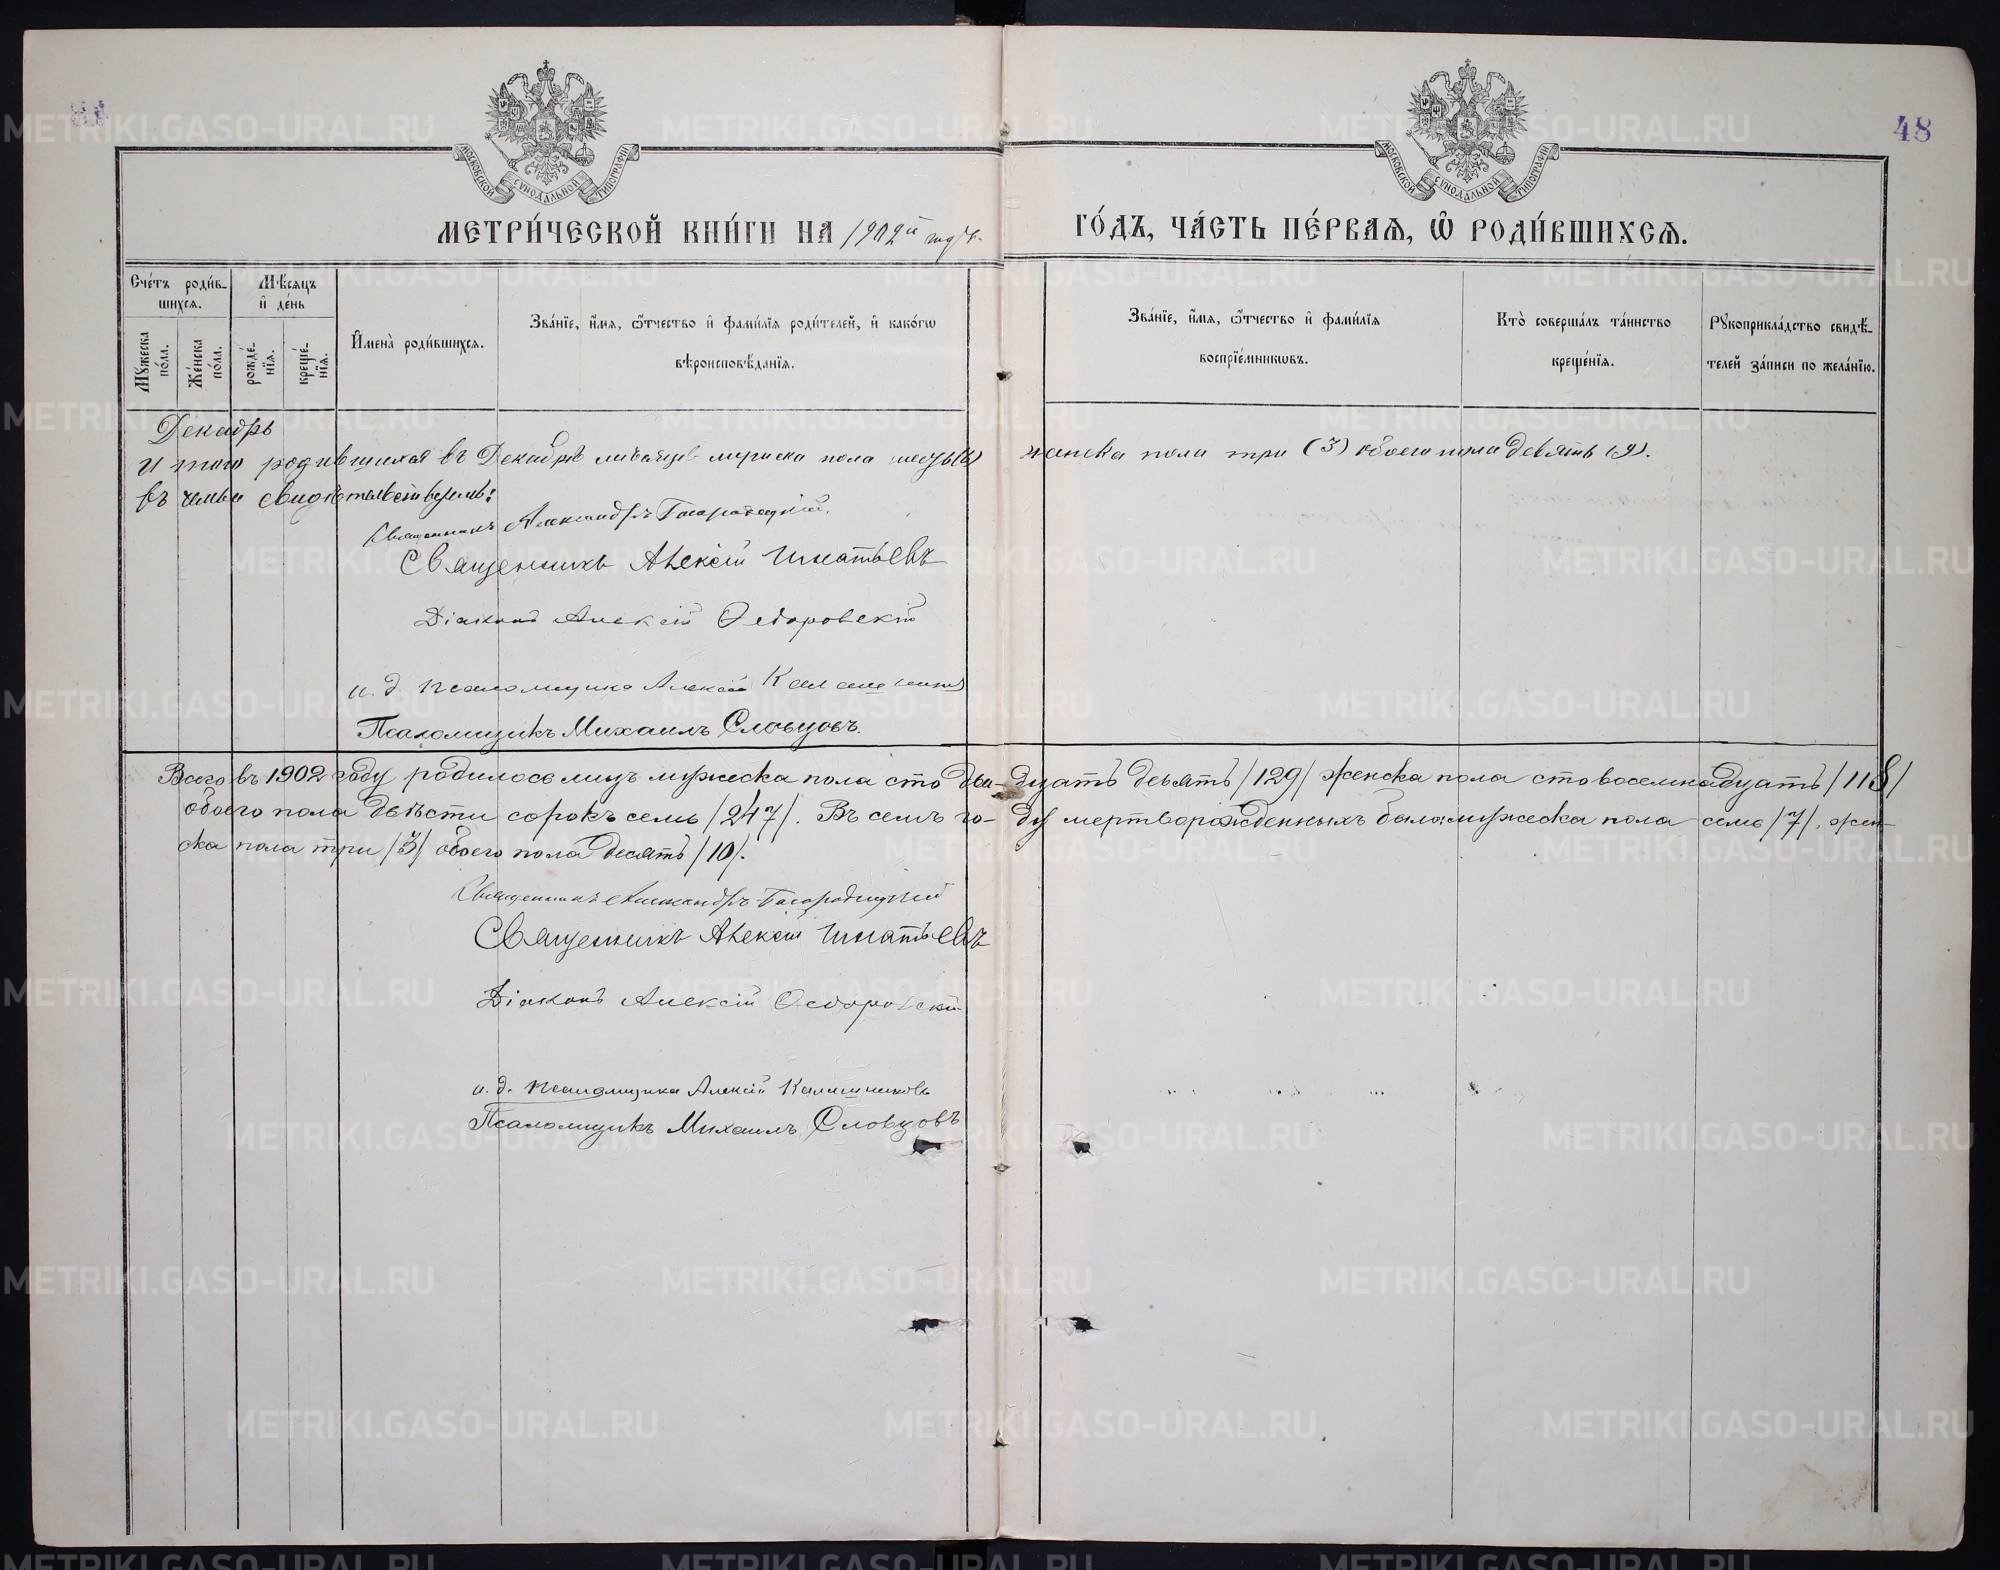 48
МОСКОВСКОЙ СѴНОДАЛЬНОЙ ТИПОГРАФІИ
МОСКОВСКОЙ СѴНОДАЛЬНОЙ ТИПОГРАФІИ
МЕТРИ́ЧЕСКОЙ КНИ́ГИ НА 1902й годъ.
ГО́ДЪ, ЧА́СТЬ ПЕ́РВАѦ, Ѡ҆ РОДИ́ВШИХСѦ.
Сче́тъ роди́в-
шихсѧ.
Мѣ́сѧцъ
и҆ де́нь
Мꙋ́жеска
по́ла.
Же́нска
по́ла.
рожде́-
нїѧ.
креще́-
нїѧ.
И҆мена̀ роди́вшихсѧ.
Зва́нїе, и҆́мѧ, ѻ҆́тчество и҆ фами́лїѧ роди́телей, и҆ како́гѡ
вѣроисповѣ́данїѧ.
Зва́нїе, и҆́мѧ, ѻ҆́тчество и҆ фами́лїѧ
воспрїе́мникѡвъ.
Кто̀ соверша́лъ та́инство
креще́нїѧ.
Рꙋкоприкла́дство свидѣ́-
телей за́писи по жела́нїю.
Декабрь
Итого родившихся въ Декабрѣ мѣсяцѣ мужска пола шесть (6) женска пола три (3) обоего пола девять (9).
въ чемъ и свидѣтельствуемъ:
Священникъ Александръ
Священникъ Алексій Игнатьевъ
Діаконъ Алексій Ѳедоровскій
и. д. псаломщика Алексій Калашниковъ
Псаломщикъ Михаилъ Словцовъ.
Всего въ 1902 году родилось лицъ мужеска пола сто двадцать девять /129/ женска пола сто восемнадцать /118/
обоего пола двѣсти сорокъ семь /247/. Въ семъ го- ду мертворожденныхъ было: мужеска пола семь /7/, жен-
ска пола три /3/ обоего пола десять /10/.
Священникъ Александръ
Священникъ Алексій Игнатьевъ
Діаконъ Алексій Ѳедоровскій
и. д. псаломщика Алексій Калашниковъ
Псаломщикъ Михаилъ Словцовъ
METRIKI.GASO-URAL.RU